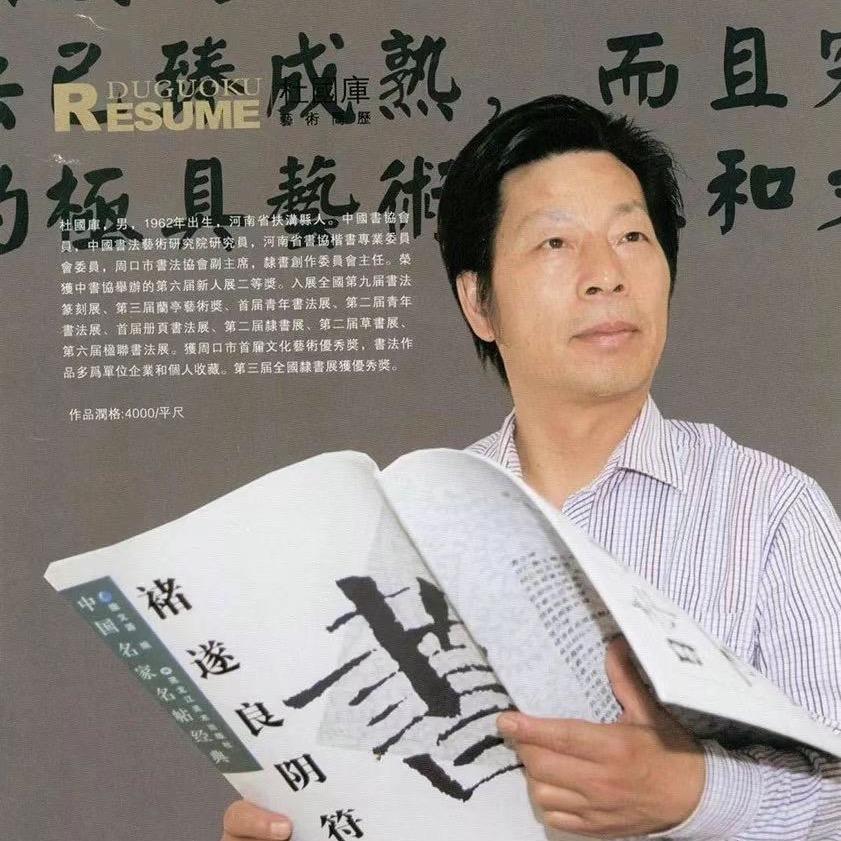 已臻成熟，而且
極具藝術
和
DUGUOKU
RESUME
杜國庫
藝術簡歷
杜國庫，男，1962年出生，河南省扶溝縣人。中國書協會
員，中國書法藝術研究院研究員，河南省書協楷書專業委員
會委員，周口市書法協會副主席，隸書創作委員會主任。榮
獲中書協舉辦的第六届新人展二等獎。入展全國第九届書法
篆刻展、第三届蘭亭藝術獎、首届青年書法展、第二届青年
書法展、首届册頁書法展、第二届隸書展、第二届草書展、
第六届楹聯書法展。獲周口市首届文化藝術優秀獎，書法作
品多爲單位企業和個人收藏。第三届全國隸書展獲優秀獎。
作品潤格:4000/平尺
中国名家名帖经典
褚遂良阴符
書